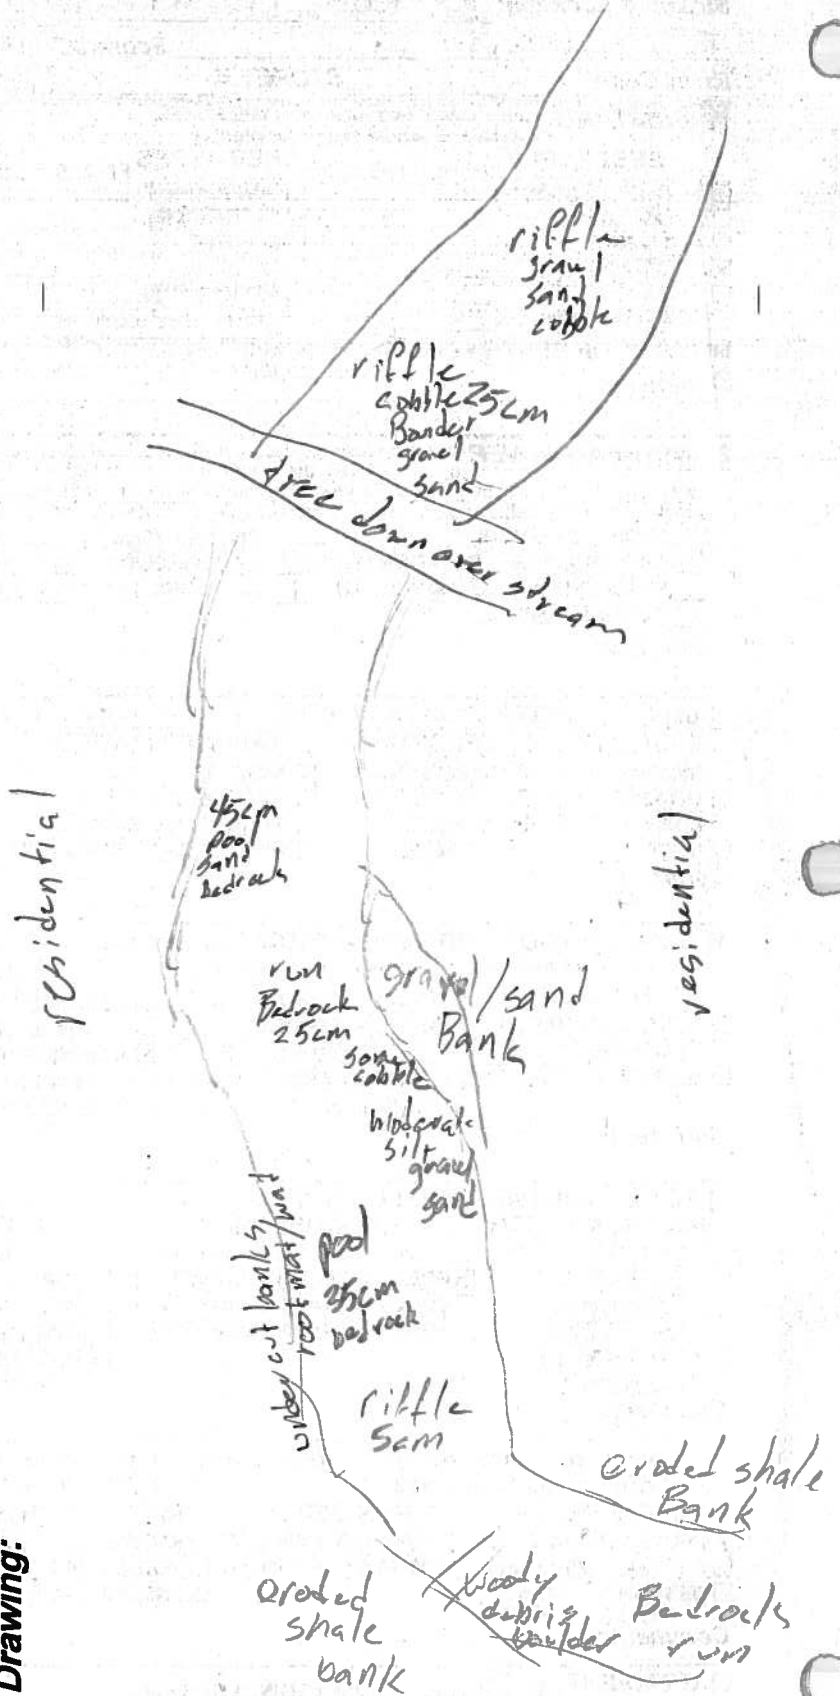 riffle
gravel
sand
cobble
riffle
cobble 25cm
Boulder
gravel
sand
tree down over stream
residential
residential
45cm
pool
sand
bedrock
run
Bedrock
25cm
some
cobble
gravel/sand
Bank
moderate
silt
gravel
sand
undercut banks,
rootmat/wad
pool
35cm
bedrock
riffle
5cm
eroded shale
Bank
eroded
shale
bank
woody
debris
boulder
Bedrock
run
Drawing: